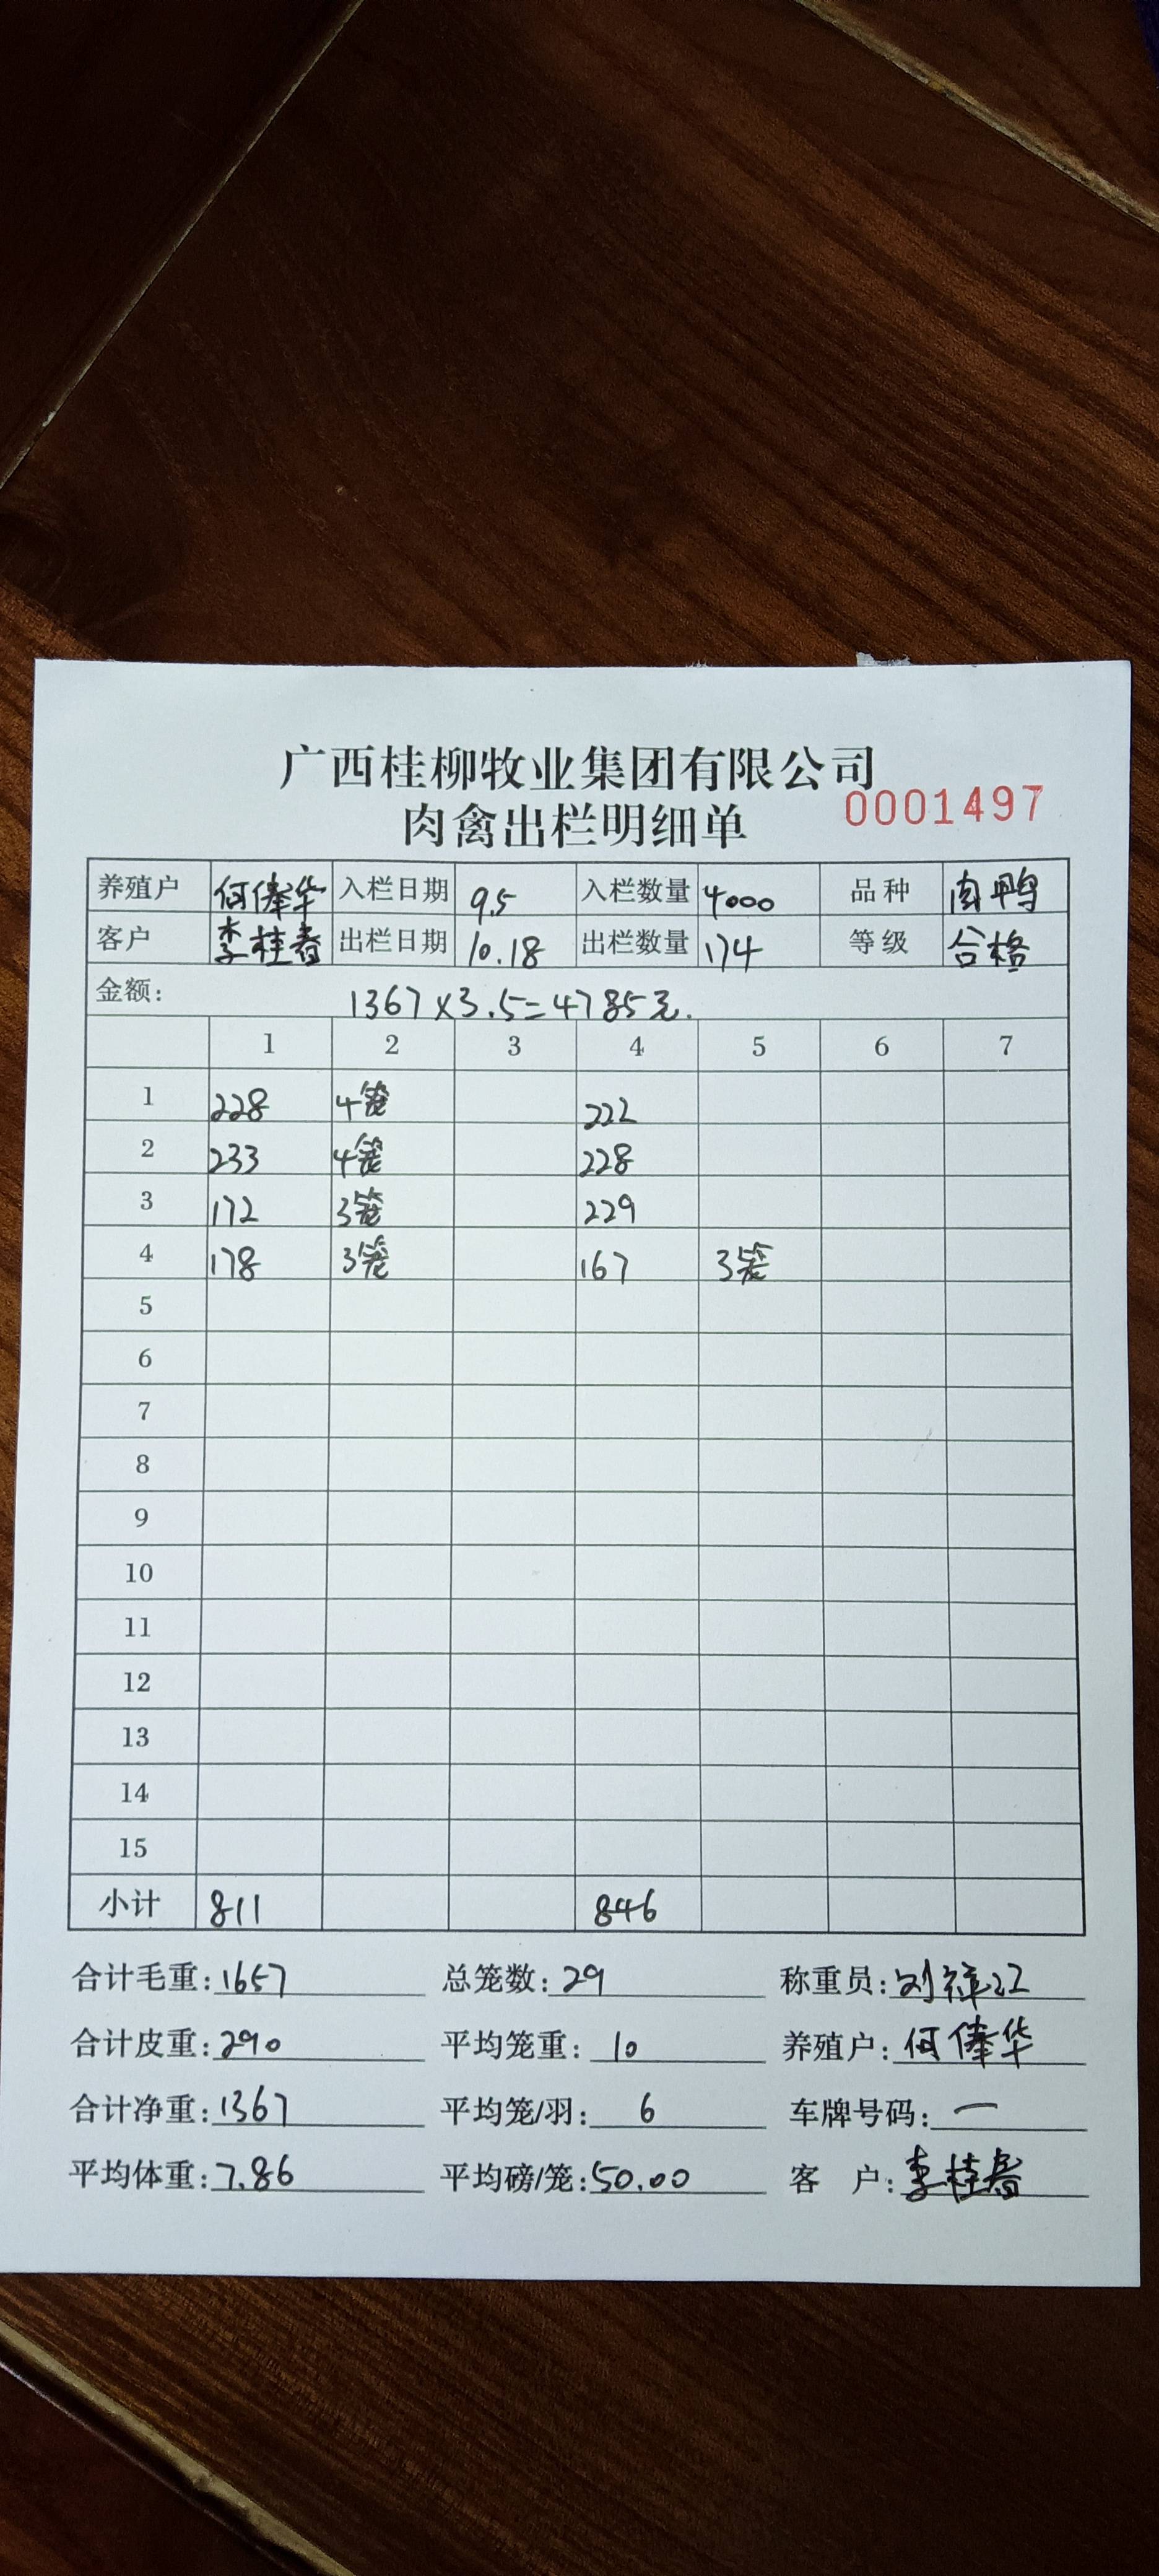 广西桂柳牧业集团有限公司
肉禽出栏明细单 0001497
养殖户 何俸华 入栏日期 9.5 入栏数量 4000 品种 肉鸭
客户 李桂春 出栏日期 10.18 出栏数量 174 等级 合格
金额: 1367×3.5=4785元.
1 2 3 4 5 6 7
1 228 4笼 222
2 233 4笼 228
3 172 3笼 229
4 178 3笼 167 3笼
5
6
7
8
9
10
11
12
13
14
15
小计 811 846
合计毛重:1657 总笼数:29 称重员:刘祥江
合计皮重:290 平均笼重:10 养殖户:何俸华
合计净重:1367 平均笼/羽:6 车牌号码:一
平均体重:7.86 平均磅/笼:50.00 客 户:李桂春